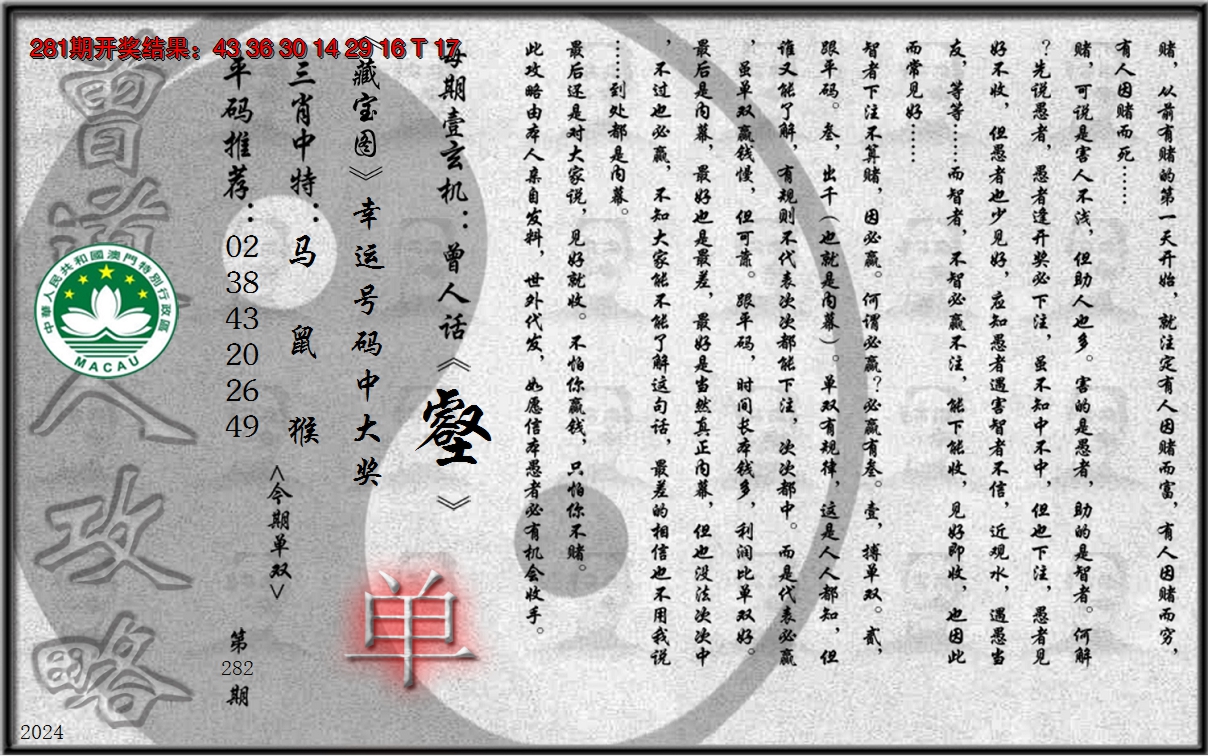 281期开奖结果：43 36 30 14 29 16 T 17
赌，从前有赌的第一天开始，就注定有人因赌而富，有人因赌而穷，
有人因赌而死……
赌，可说是害人不浅，但助人也多。害的是愚者，助的是智者。何解
？先说愚者，愚者逢开奖必下注，虽不知中不中，但也下注，愚者见
好不收，但愚者也少见好，应知愚者遇害智者不信，近观水，遇愚当
友，等等……而智者，不智必赢不注，能下能收，见好即收，也因此
而常见好……
智者下注不算赌，因必赢。何谓必赢？必赢有叁。壹，搏单双。贰，
跟平码。叁，出千（也就是内幕）。单双有规律，这是人人都知，但
谁又能了解，有规则不代表次次都能下注，次次都中。而是代表必赢
，虽单双赢钱慢，但可靠。跟平码，时间长本钱多，利润比单双好。
最后是内幕，最好也是最差，最好是当然真正内幕，但也没法次次中
，不过也必赢，不知大家能不能了解这句话，最差的相信也不用我说
……到处都是内幕。
最后还是对大家说，见好就收。不怕你赢钱，只怕你不赌。
此攻略由本人亲自发料，世外代发，如愿信本愚者必有机会收手。
每期壹玄机：曾人话《壑》
《藏宝图》幸运号码中大奖
三肖中特：马 鼠 猴
<今期单双>
单
平码推荐：
02
38
43
20
26
49
第
282
期
曾道人攻略
中華人民共和國澳門特別行政區
MACAU
2024